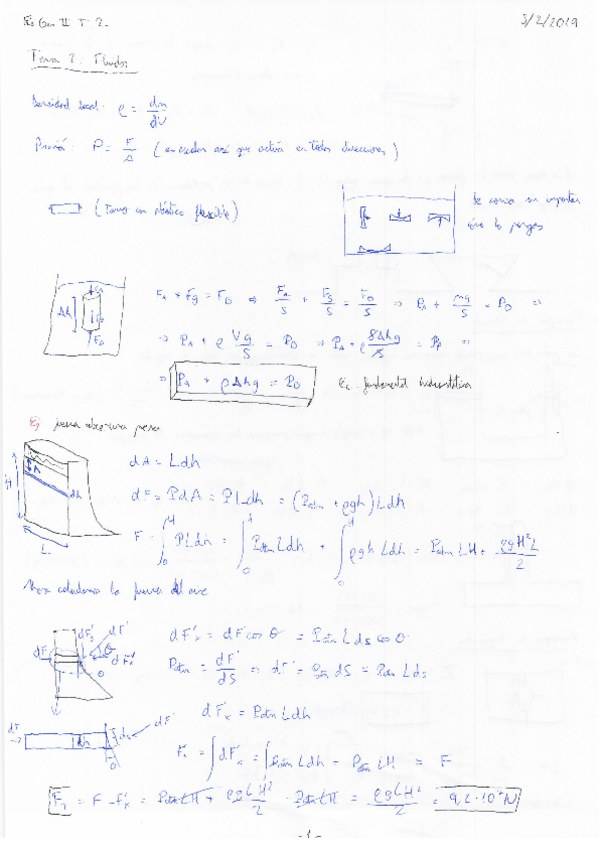 Fis Gen II T. 2. 5/2/2019
Tema 2. Fluidos
Densidad local: ρ = dm/dV
Presión: P = F/A ( escalar así que actúa en todas direcciones )
( en plástico flexible )
Da como importar cómo lo pongas
Δh
F_A + Fg = F_D ⇒ F_A/S + Fg/S = F_D/S ⇒ P_A + mg/S = P_D ⇒
⇒ P_A + ρ Vg/S = P_D ⇒ P_A + ρ SΔhg/S = P_D ⇒
⇒ P_A + ρΔhg = P_D Ec. fundamental hidrostática
Ej presa
dA = Ldh
H h dh L
dF = PdA = PLdh = (Patm + ρgh) Ldh
F = ∫₀ᴴ PLdh = ∫₀ᴴ Patm Ldh + ∫₀ᴴ ρgh Ldh = Patm LH + ρgH²L/2
Ahora calculamos la fuerza del aire
dF dF'y dF' dF'x θ
dF'x = dF' cos θ = Patm L ds cos θ
Patm = dF'/dS ⇒ dF' = Patm dS = Patm L ds
dF'x = Patm Ldh
dF dh ds dF' θ
F'x = ∫ dF'x = ∫ Patm Ldh = Patm LH = F
F_T = F - F'x = Patm LH + ρgLH²/2 - Patm LH = ρgLH²/2 = 9,2·10⁷ N
-1-